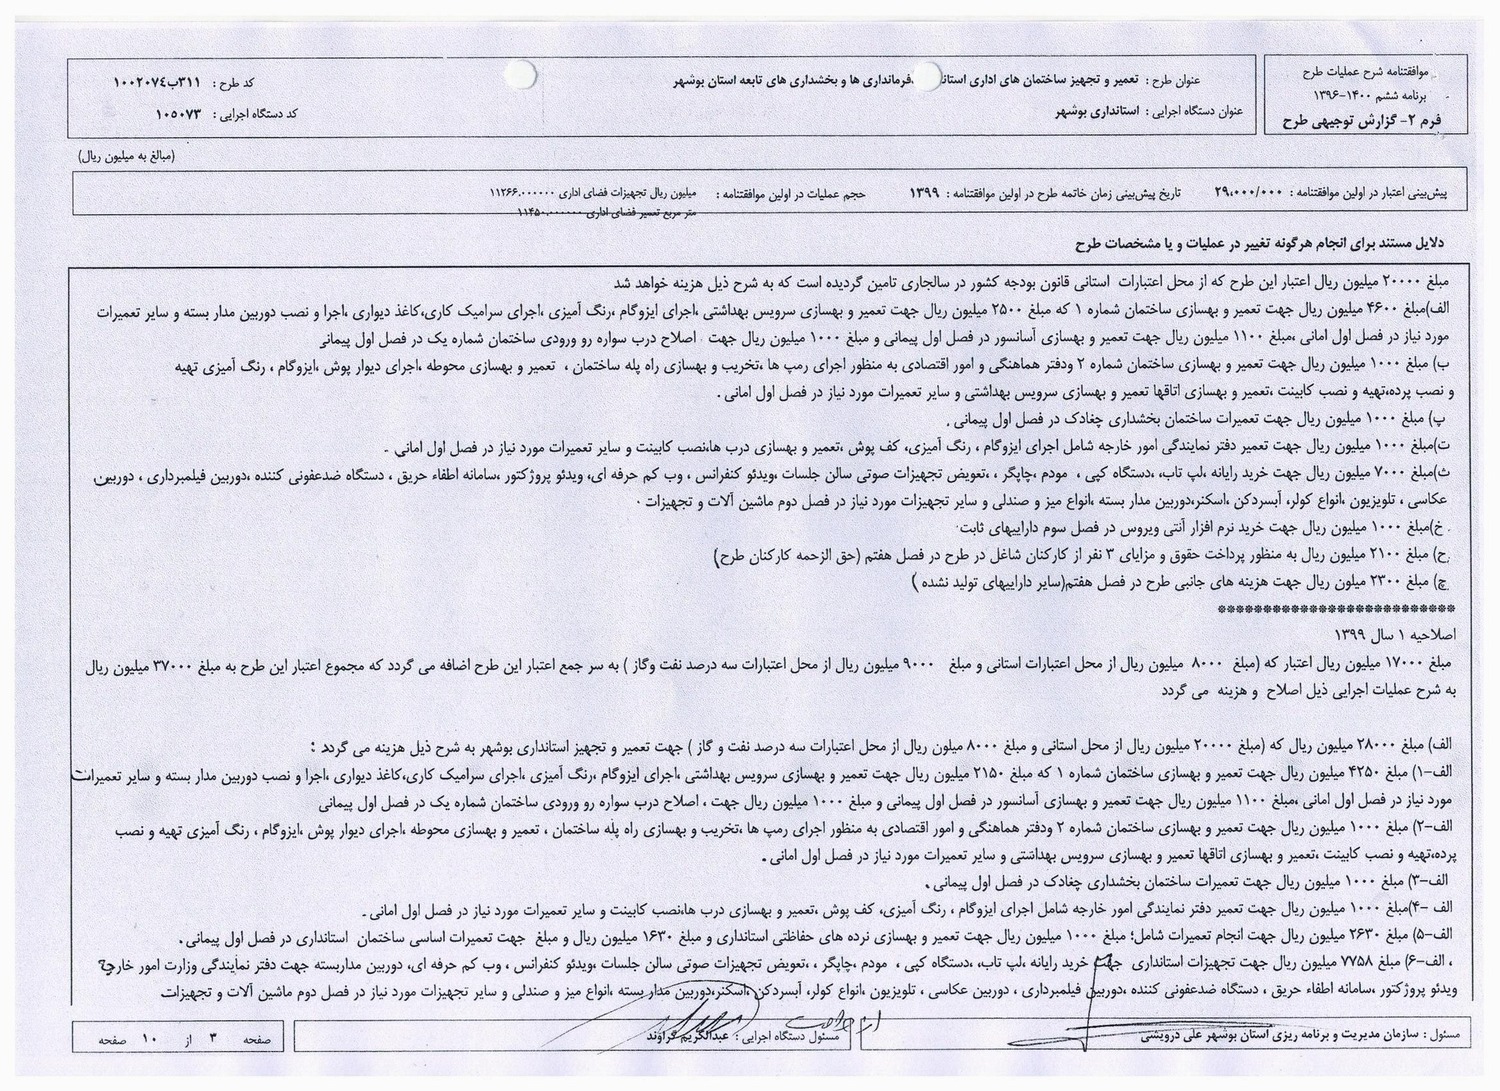 موافقتنامه شرح عملیات طرح
برنامه ششم ۱۴۰۰-۱۳۹۶
فرم ۲- گزارش توجیهی طرح
عنوان طرح : تعمیر و تجهیز ساختمان های اداری ،فرمانداری ها و بخشداری های تابعه استان بوشهر
عنوان دستگاه اجرایی : استانداری بوشهر
کد طرح : ۱۰۰۲۰۷٤ب۳۱۱
کد دستگاه اجرایی : ۱۰۵۰۷۳
(مبالغ به میلیون ریال)
پیش‌بینی اعتبار در اولین موافقتنامه : ۲۹،۰۰۰/۰۰۰ تاریخ پیش‌بینی زمان خاتمه طرح در اولین موافقتنامه : ۱۳۹۹ حجم عملیات در اولین موافقتنامه : میلیون ریال تجهیزات فضای اداری ۱۱۲۶۶.۰۰۰۰۰۰
متر مربع تعمیر فضای اداری ۱۱۴۵۰.۰۰۰۰۰۰
دلایل مستند برای انجام هرگونه تغییر در عملیات و یا مشخصات طرح
مبلغ ۲۰۰۰۰ میلیون ریال اعتبار این طرح که از محل اعتبارات استانی قانون بودجه کشور در سالجاری تامین گردیده است که به شرح ذیل هزینه خواهد شد
الف)مبلغ ۴۶۰۰ میلیون ریال جهت تعمیر و بهسازی ساختمان شماره ۱ که مبلغ ۲۵۰۰ میلیون ریال جهت تعمیر و بهسازی سرویس بهداشتی ،اجرای ایزوگام ،رنگ آمیزی ،اجرای سرامیک کاری،کاغذ دیواری ،اجرا و نصب دوربین مدار بسته و سایر تعمیرات
مورد نیاز در فصل اول امانی ،مبلغ ۱۱۰۰ میلیون ریال جهت تعمیر و بهسازی آسانسور در فصل اول پیمانی و مبلغ ۱۰۰۰ میلیون ریال جهت اصلاح درب سواره رو ورودی ساختمان شماره یک در فصل اول پیمانی
ب) مبلغ ۱۰۰۰ میلیون ریال جهت تعمیر و بهسازی ساختمان شماره ۲ ودفتر هماهنگی و امور اقتصادی به منظور اجرای رمپ ها ،تخریب و بهسازی راه پله ساختمان ، تعمیر و بهسازی محوطه ،اجرای دیوار پوش ،ایزوگام ، رنگ آمیزی تهیه
و نصب پرده،تهیه و نصب کابینت ،تعمیر و بهسازی اتاقها تعمیر و بهسازی سرویس بهداشتی و سایر تعمیرات مورد نیاز در فصل اول امانی .
پ) مبلغ ۱۰۰۰ میلیون ریال جهت تعمیرات ساختمان بخشداری چغادک در فصل اول پیمانی .
ت)مبلغ ۱۰۰۰ میلیون ریال جهت تعمیر دفتر نمایندگی امور خارجه شامل اجرای ایزوگام ، رنگ آمیزی، کف پوش ،تعمیر و بهسازی درب ها،نصب کابینت و سایر تعمیرات مورد نیاز در فصل اول امانی .
ث)مبلغ ۷۰۰۰ میلیون ریال جهت خرید رایانه ،لپ تاب، ،دستگاه کپی ، مودم ،چاپگر ، ،تعویض تجهیزات صوتی سالن جلسات ،ویدئو کنفرانس ، وب کم حرفه ای، ویدئو پروژکتور ،سامانه اطفاء حریق ، دستگاه ضدعفونی کننده ،دوربین فیلمبرداری ، دوربین
عکاسی ، تلویزیون ،انواع کولر، آبسردکن ،اسکنر،دوربین مدار بسته ،انواع میز و صندلی و سایر تجهیزات مورد نیاز در فصل دوم ماشین آلات و تجهیزات .
خ)مبلغ ۱۰۰۰ میلیون ریال جهت خرید نرم افزار آنتی ویروس در فصل سوم داراییهای ثابت.
ح) مبلغ ۲۱۰۰ میلیون ریال به منظور پرداخت حقوق و مزایای ۳ نفر از کارکنان شاغل در طرح در فصل هفتم (حق الزحمه کارکنان طرح)
چ) مبلغ ۲۳۰۰ میلون ریال جهت هزینه های جانبی طرح در فصل هفتم(سایر داراییهای تولید نشده )
**************************
اصلاحیه ۱ سال ۱۳۹۹
مبلغ ۱۷۰۰۰ میلیون ریال اعتبار که (مبلغ ۸۰۰۰ میلیون ریال از محل اعتبارات استانی و مبلغ ۹۰۰۰ میلیون ریال از محل اعتبارات سه درصد نفت وگاز ) به سر جمع اعتبار این طرح اضافه می گردد که مجموع اعتبار این طرح به مبلغ ۳۷۰۰۰ میلیون ریال
به شرح عملیات اجرایی ذیل اصلاح و هزینه می گردد
الف) مبلغ ۲۸۰۰۰ میلیون ریال که (مبلغ ۲۰۰۰۰ میلیون ریال از محل استانی و مبلغ ۸۰۰۰ میلون ریال از محل اعتبارات سه درصد نفت و گاز ) جهت تعمیر و تجهیز استانداری بوشهر به شرح ذیل هزینه می گردد :
الف-۱) مبلغ ۴۲۵۰ میلیون ریال جهت تعمیر و بهسازی ساختمان شماره ۱ که مبلغ ۲۱۵۰ میلیون ریال جهت تعمیر و بهسازی سرویس بهداشتی ،اجرای ایزوگام ،رنگ آمیزی ،اجرای سرامیک کاری،کاغذ دیواری ،اجرا و نصب دوربین مدار بسته و سایر تعمیرات
مورد نیاز در فصل اول امانی ،مبلغ ۱۱۰۰ میلیون ریال جهت تعمیر و بهسازی آسانسور در فصل اول پیمانی و مبلغ ۱۰۰۰ میلیون ریال جهت ، اصلاح درب سواره رو ورودی ساختمان شماره یک در فصل اول پیمانی
الف-۲) مبلغ ۱۰۰۰ میلیون ریال جهت تعمیر و بهسازی ساختمان شماره ۲ ودفتر هماهنگی و امور اقتصادی به منظور اجرای رمپ ها ،تخریب و بهسازی راه پله ساختمان ، تعمیر و بهسازی محوطه ،اجرای دیوار پوش ،ایزوگام ، رنگ آمیزی تهیه و نصب
پرده،تهیه و نصب کابینت ،تعمیر و بهسازی اتاقها تعمیر و بهسازی سرویس بهداشتی و سایر تعمیرات مورد نیاز در فصل اول امانی .
الف-۳) مبلغ ۱۰۰۰ میلیون ریال جهت تعمیرات ساختمان بخشداری چغادک در فصل اول پیمانی .
الف -۴)مبلغ ۱۰۰۰ میلیون ریال جهت تعمیر دفتر نمایندگی امور خارجه شامل اجرای ایزوگام ، رنگ آمیزی، کف پوش ،تعمیر و بهسازی درب ها،نصب کابینت و سایر تعمیرات مورد نیاز در فصل اول امانی .
الف-۵) مبلغ ۲۶۳۰ میلیون ریال جهت انجام تعمیرات شامل؛ مبلغ ۱۰۰۰ میلیون ریال جهت تعمیر و بهسازی نرده های حفاظتی استانداری و مبلغ ۱۶۳۰ میلیون ریال و مبلغ جهت تعمیرات اساسی ساختمان استانداری در فصل اول پیمانی .
، الف-۶) مبلغ ۷۷۵۸ میلیون ریال جهت تجهیزات استانداری جهت خرید رایانه ،لپ تاب، ،دستگاه کپی ، مودم ،چاپگر ، ،تعویض تجهیزات صوتی سالن جلسات ،ویدئو کنفرانس ، وب کم حرفه ای، دوربین مداربسته جهت دفتر نمایندگی وزارت امور خارجه
ویدئو پروژکتور ،سامانه اطفاء حریق ، دستگاه ضدعفونی کننده ،دوربین فیلمبرداری ، دوربین عکاسی ، تلویزیون ،انواع کولر، آبسردکن ،اسکنر،دوربین مدار بسته ،انواع میز و صندلی و سایر تجهیزات مورد نیاز در فصل دوم ماشین آلات و تجهیزات
مسئول : سازمان مدیریت و برنامه ریزی استان بوشهر علی درویشی
مسئول دستگاه اجرایی : عبدالکریم گراوند
صفحه ۳ از ۱۰ صفحه